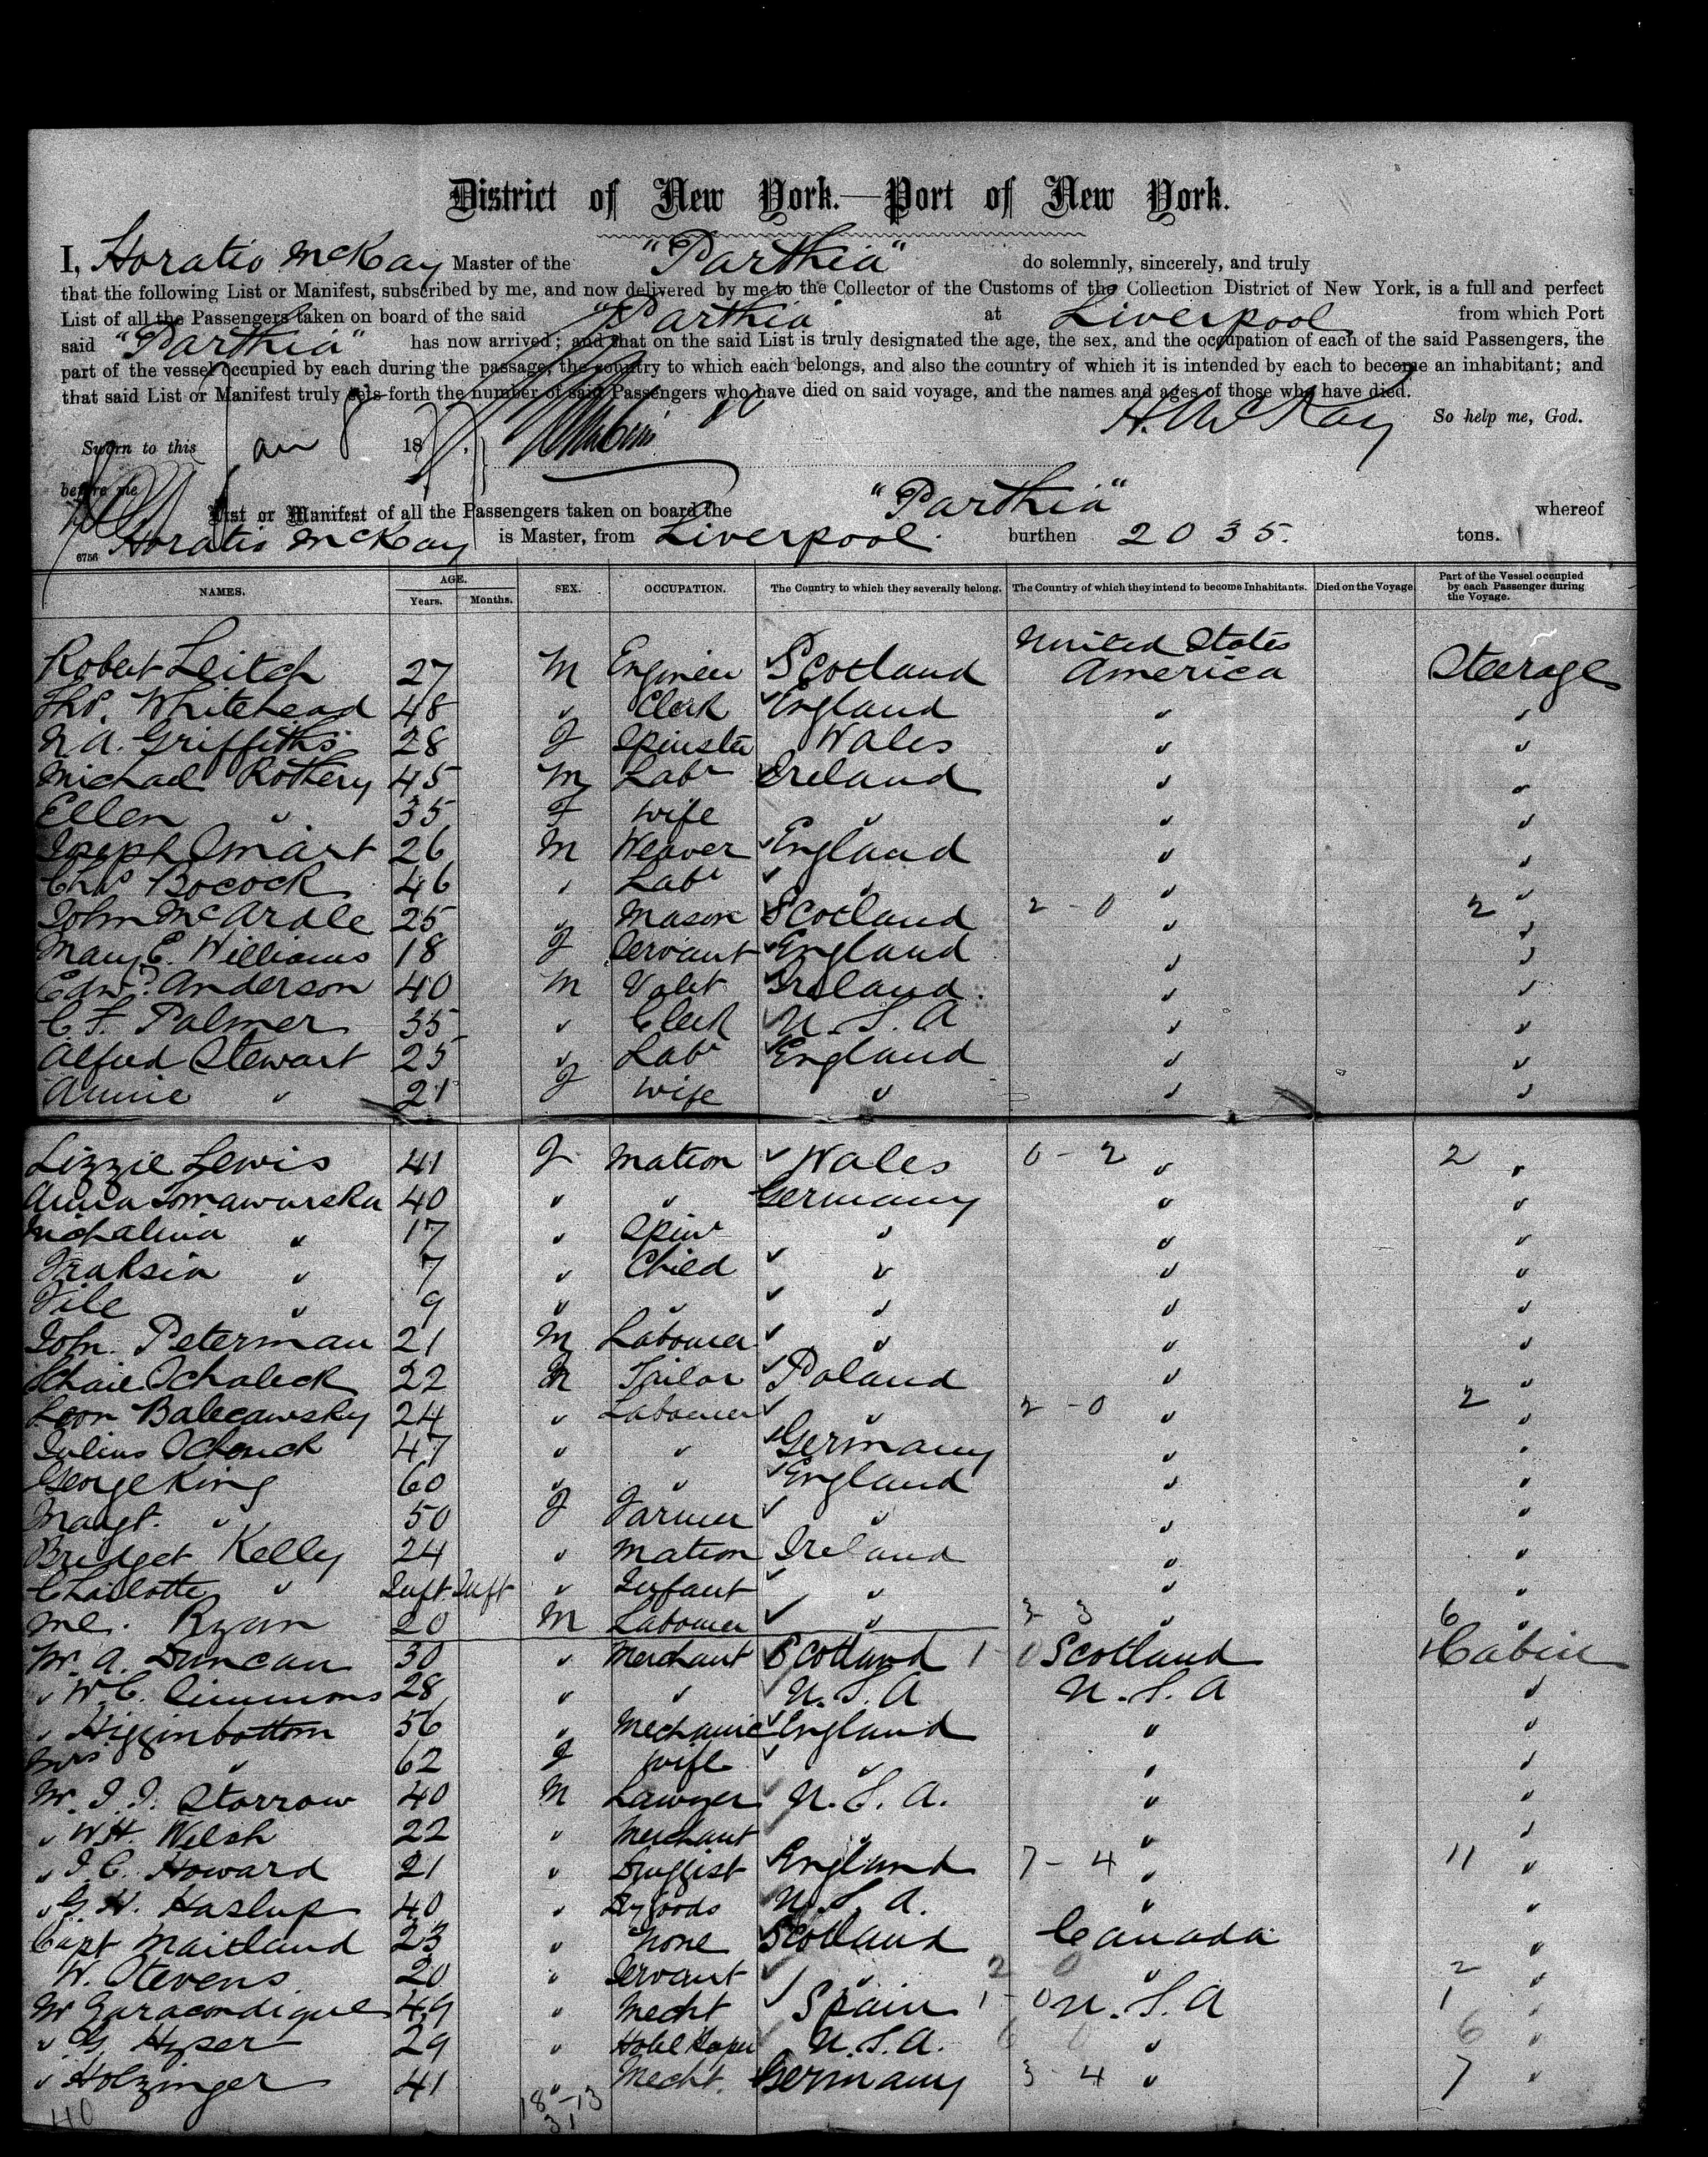 District of New York.—Port of New York.
I, Horatio McKay Master of the "Parthia" do solemnly, sincerely, and truly
that the following List or Manifest, subscribed by me, and now delivered by me to the Collector of the Customs of the Collection District of New York, is a full and perfect
List of all the Passengers taken on board of the said "Parthia" at Liverpool from which Port
said "Parthia" has now arrived; and that on the said List is truly designated the age, the sex, and the occupation of each of the said Passengers, the
part of the vessel occupied by each during the passage, the country to which each belongs, and also the country of which it is intended by each to become an inhabitant; and
that said List or Manifest truly sets forth the number of said Passengers who have died on said voyage, and the names and ages of those who have died.
H. McKay So help me, God.
Sworn to this 8 18
before me
List or Manifest of all the Passengers taken on board the "Parthia" whereof
6756 Horatio McKay is Master, from Liverpool. burthen 2035. tons.
NAMES. AGE. Years. Months. SEX. OCCUPATION. The Country to which they severally belong. The Country of which they intend to become Inhabitants. Died on the Voyage Part of the Vessel occupied by each Passenger during the Voyage.
Robert Leitch 27 M Engineer Scotland United States America Steerage
Thos. Whitehead 48 " Clerk England " "
N. A. Griffiths 28 F Spinster Wales " "
Michael Rothery 45 M Labr Ireland " "
Ellen " 35 F Wife " " "
Joseph Smart 26 M Weaver England " "
Chas Bocock 46 " Labr " " "
John McArdle 25 " Mason Scotland 2-0 " 2 "
Mary E. Williams 18 F Servant England " "
Edwd. Anderson 40 M Valet Ireland. " "
C. F. Palmer 35 " Clerk U.S.A " "
Alfred Stewart 25 " Labr England " "
Annie " 21 F Wife " " "
Lizzie Lewis 41 F Matron Wales 0-2 " 2 "
Anna 40 " " Germany " "
Michalina " 17 " Spinr " " "
" 7 " Child " " "
" 9 " " " " "
John Peterman 21 M Labourer " " "
22 M Tailor Poland " "
Leon Balecawsky 24 " Labourer " 2-0 " 2 "
Julius 47 " " Germany " "
George King 60 " " England " "
Margt. " 50 F Farmer " " "
Bridget Kelly 24 " Matron Ireland " "
Charlotte " Inft Inft " Infant " " "
Ml. Ryan 20 M Labourer " 3-3 " 6 "
Mr. A. Duncan 30 " Merchant Scotland 1-0 Scotland 1 Cabin
" W. C. Simmons 28 " " U.S.A U.S.A "
" Higginbottom 56 " Mechanic England " "
Mrs " 62 F Wife " " "
Mr. J. J. Storrow 40 M Lawyer U.S.A. " "
" W. H. Welsh 22 " Merchant " " "
" J. C. Howard 21 " Druggist England 7-4 " 11 "
" G. H. Haslup 40 " Dry Goods U.S.A. " "
Capt Maitland 23 " None Scotland Canada "
W. Stevens 20 " Servant " 2-0 " 2 "
Mr 49 " Mecht Spain 1-0 U.S.A 1 "
" G. Hyser 29 " Hotel Keeper U.S.A. 6 0 " 6 "
" Holzinger 41 " Mecht. Germany 3-4 " 7 "
40 18-13
31